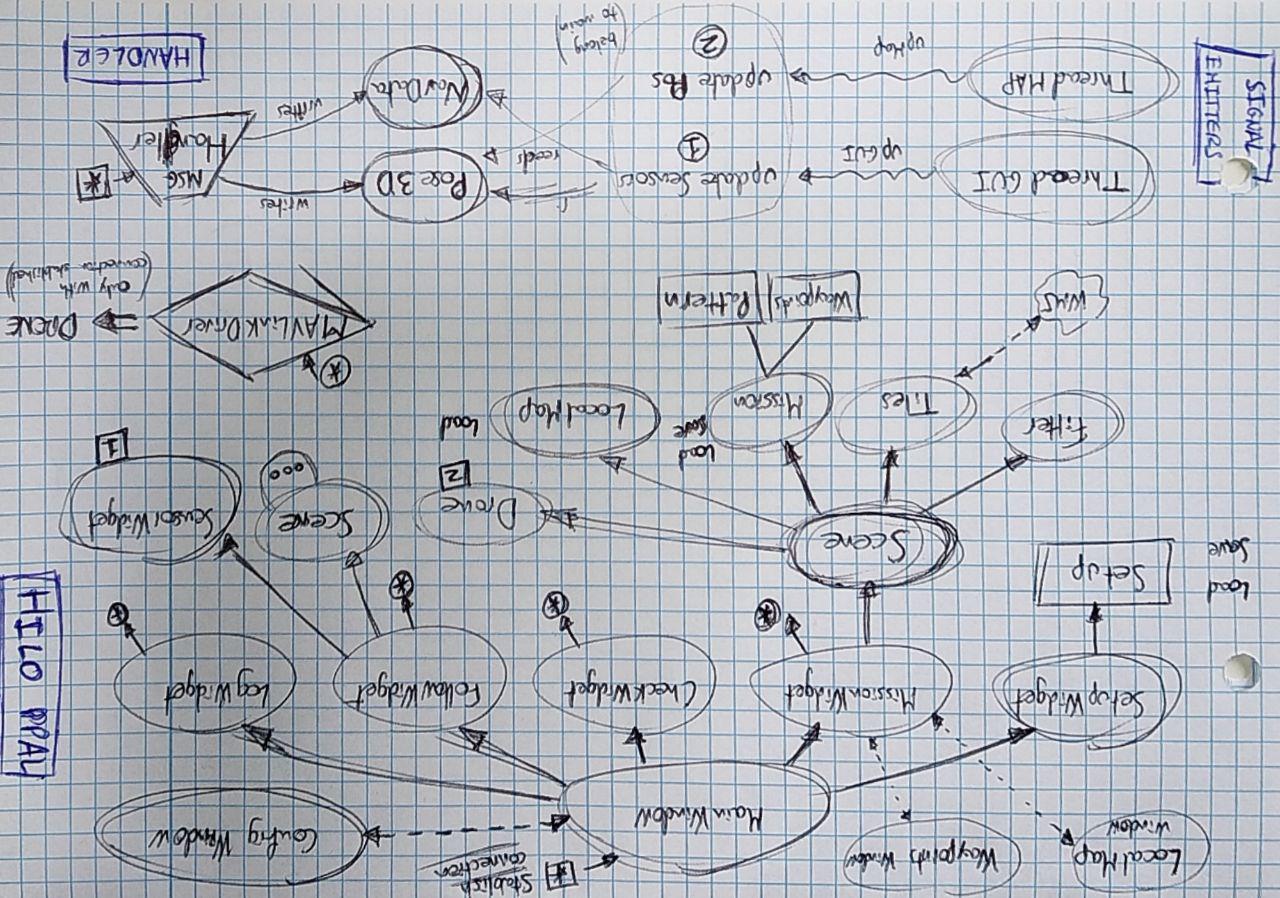 LocalMap
Window
Waypoints Window
MainWindow
*
Stablish
connection
Config Window
HILO PPAL
SetupWidget
MissionWidget
CheckWidget
FollowWidget
LogWidget
*
*
*
*
Load
Save
Setup
Scene
Drone
2
Scene
...
SensorWidget
1
Filter
Tiles
Mission
Load
Save
LocalMap
Load
WMS
Waypoints
Pattern
*
MAVLinkDriver
DRONE
(only with
connection stablished)
SIGNAL
EMITTERS
Thread GUI
upGUI
update Sensors
1
r.
reads
Pose 3D
writes
MSG
Handler
*
Thread MAP
upMap
update Pos
2
(belong
to main)
NavData
writes
HANDLER